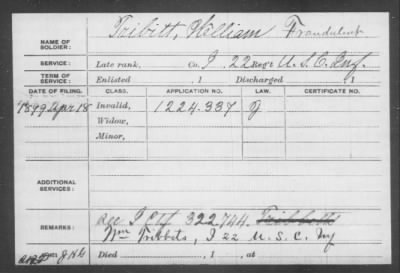 NAME OF SOLDIER: Tribitt, William Fraudulent
SERVICE: Late rank, Co. I, 22 Reg't U.S.C. Inf.
TERM OF SERVICE: Enlisted , 1 Discharged , 1
DATE OF FILING. CLASS. APPLICATION NO. LAW. CERTIFICATE NO.
1899 Apr 18 Invalid, 1224.337
Widow,
Minor,
ADDITIONAL SERVICES:
REMARKS: See I Ctf 322.744. Tribbetts
Wm Tribbets, I 22 U.S.C. Inf
Died , 1 , at